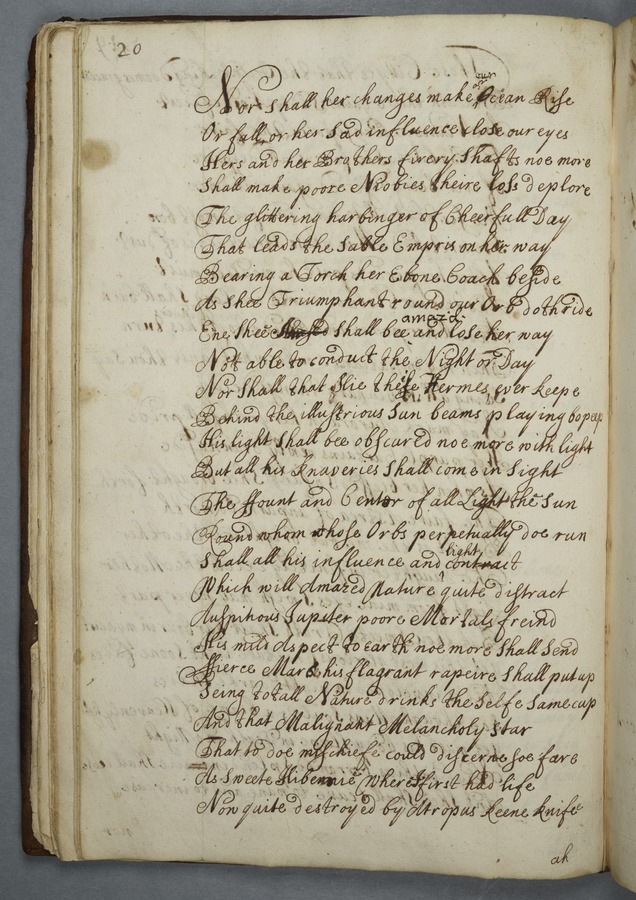 20
Nor shall her changes make our Ocean Rise
Or fall, or her sad influence close our eyes
Hers and her Brothers firery shafts noe more
Shall make poore Niobies theire loss deplore
The glittering harbinger of Cheerfull Day
That leads the Sable Empris on her way
Bearing a Torch her Ebone Coach beside
As shee Triumphant round our Orb doth ride
Ene shee shall bee amazd and lose her way
Not able to conduct the Night or Day
Nor shall that Slie theife Hermes ever keepe
Behind the illustrious Sun beams playing bopeep
His light shall bee obscured noe more with light
But all his Knaveries shall come in sight
The ffount and Center of all Light the Sun
Round whom whose Orbs perpetually doe run
Shall all his influence and light contract
Which will Amazed Nature quite distract
Auspitious Jupiter poore Mortals freind
His mild Aspect to earth noe more shall send
ffierce Mars his flagrant rapeire shall put up
Seing totall Nature drinks the selfe same cup
And that Malignant Melancholy star
That to doe mischiefe could discerne soe fare
As sweete Hibernie where I first had life
Now quite destroyed by Atropus keene knife
ah